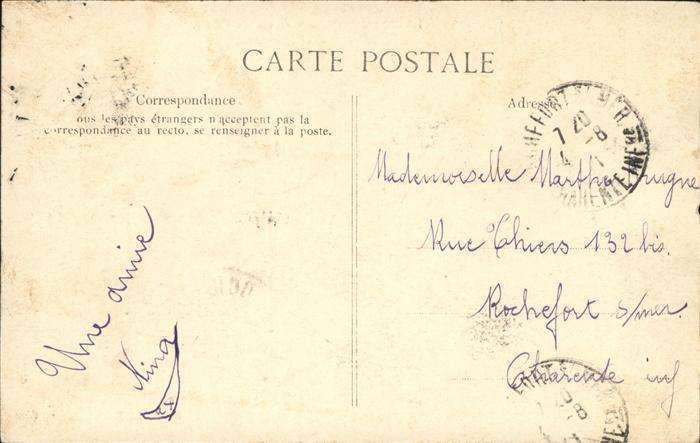 CARTE POSTALE
Correspondance
ous les pays étrangers n'acceptent pas la
correspondance au recto, se renseigner à la poste.
Une amie
Nina
Adresse
Mademoiselle Marthe
Rue Thiers 132 bis.
Rochefort s/mer.
Charente inf